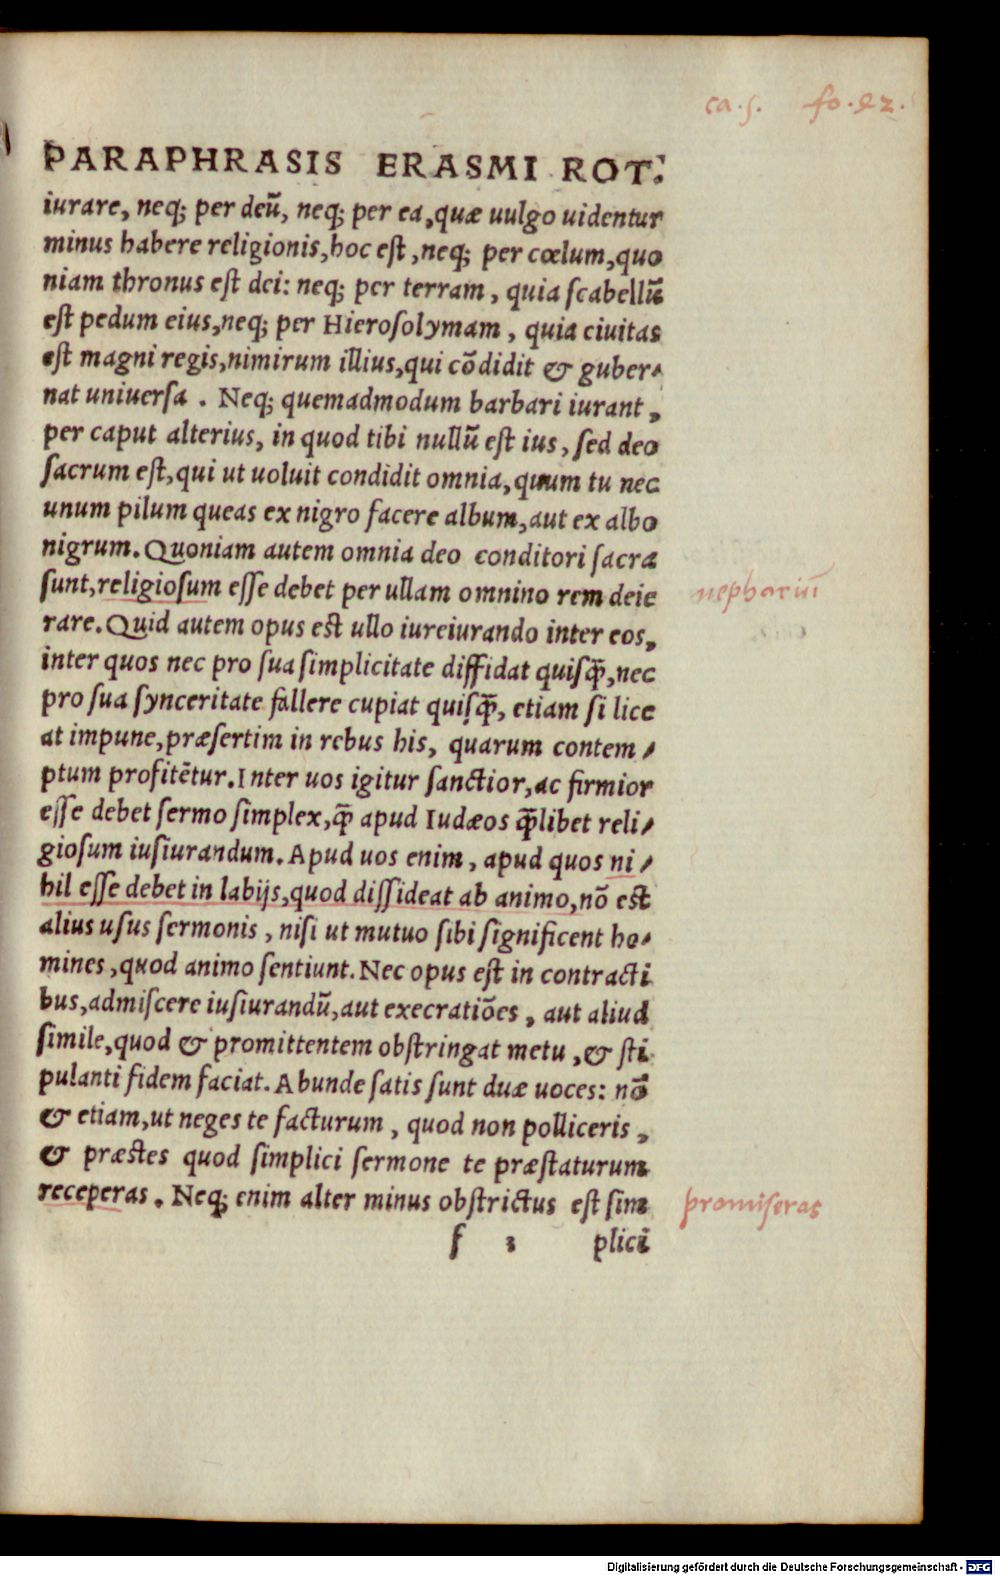 ca.5. fo.42.
PARAPHRASIS ERASMI ROT.
iurare, neq; per deũ, neq; per ea,quæ uulgo uidentur
minus habere religionis,hoc est,neq; per cœlum,quo
niam thronus est dei: neq; per terram, quia scabellũ
est pedum eius,neq; per Hierosolymam, quia ciuitas
est magni regis,nimirum illius,qui cõdidit & guber-
nat uniuersa. Neq; quemadmodum barbari iurant,
per caput alterius, in quod tibi nullũ est ius, sed deo
sacrum est,qui ut uoluit condidit omnia,quum tu nec
unum pilum queas ex nigro facere album,aut ex albo
nigrum. Quoniam autem omnia deo conditori sacra
sunt,religiosum esse debet per ullam omnino rem deie
nepharium
rare. Quid autem opus est ullo iureiurando inter eos,
inter quos nec pro sua simplicitate diffidat quisq̃,nec
pro sua synceritate fallere cupiat quisq̃, etiam si lice
at impune,præsertim in rebus his, quarum contem-
ptum profitẽtur. Inter uos igitur sanctior,ac firmior
esse debet sermo simplex,q̃ apud Iudæos q̃libet reli-
giosum iusiurandum. Apud uos enim, apud quos ni-
hil esse debet in labijs,quod dissideat ab animo,nõ est
alius usus sermonis, nisi ut mutuo sibi significent ho-
mines,quod animo sentiunt. Nec opus est in contracti
bus,admiscere iusiurandũ,aut execratiões, aut aliud
simile,quod & promittentem obstringat metu,& sti
pulanti fidem faciat. Abunde satis sunt duæ uoces: nõ
& etiam,ut neges te facturum, quod non polliceris,
& præstes quod simplici sermone te præstaturum
receperas. Neq; enim alter minus obstrictus est sim
promiseras
f 2 plici
Digitalisierung gefördert durch die Deutsche Forschungsgemeinschaft - DFG